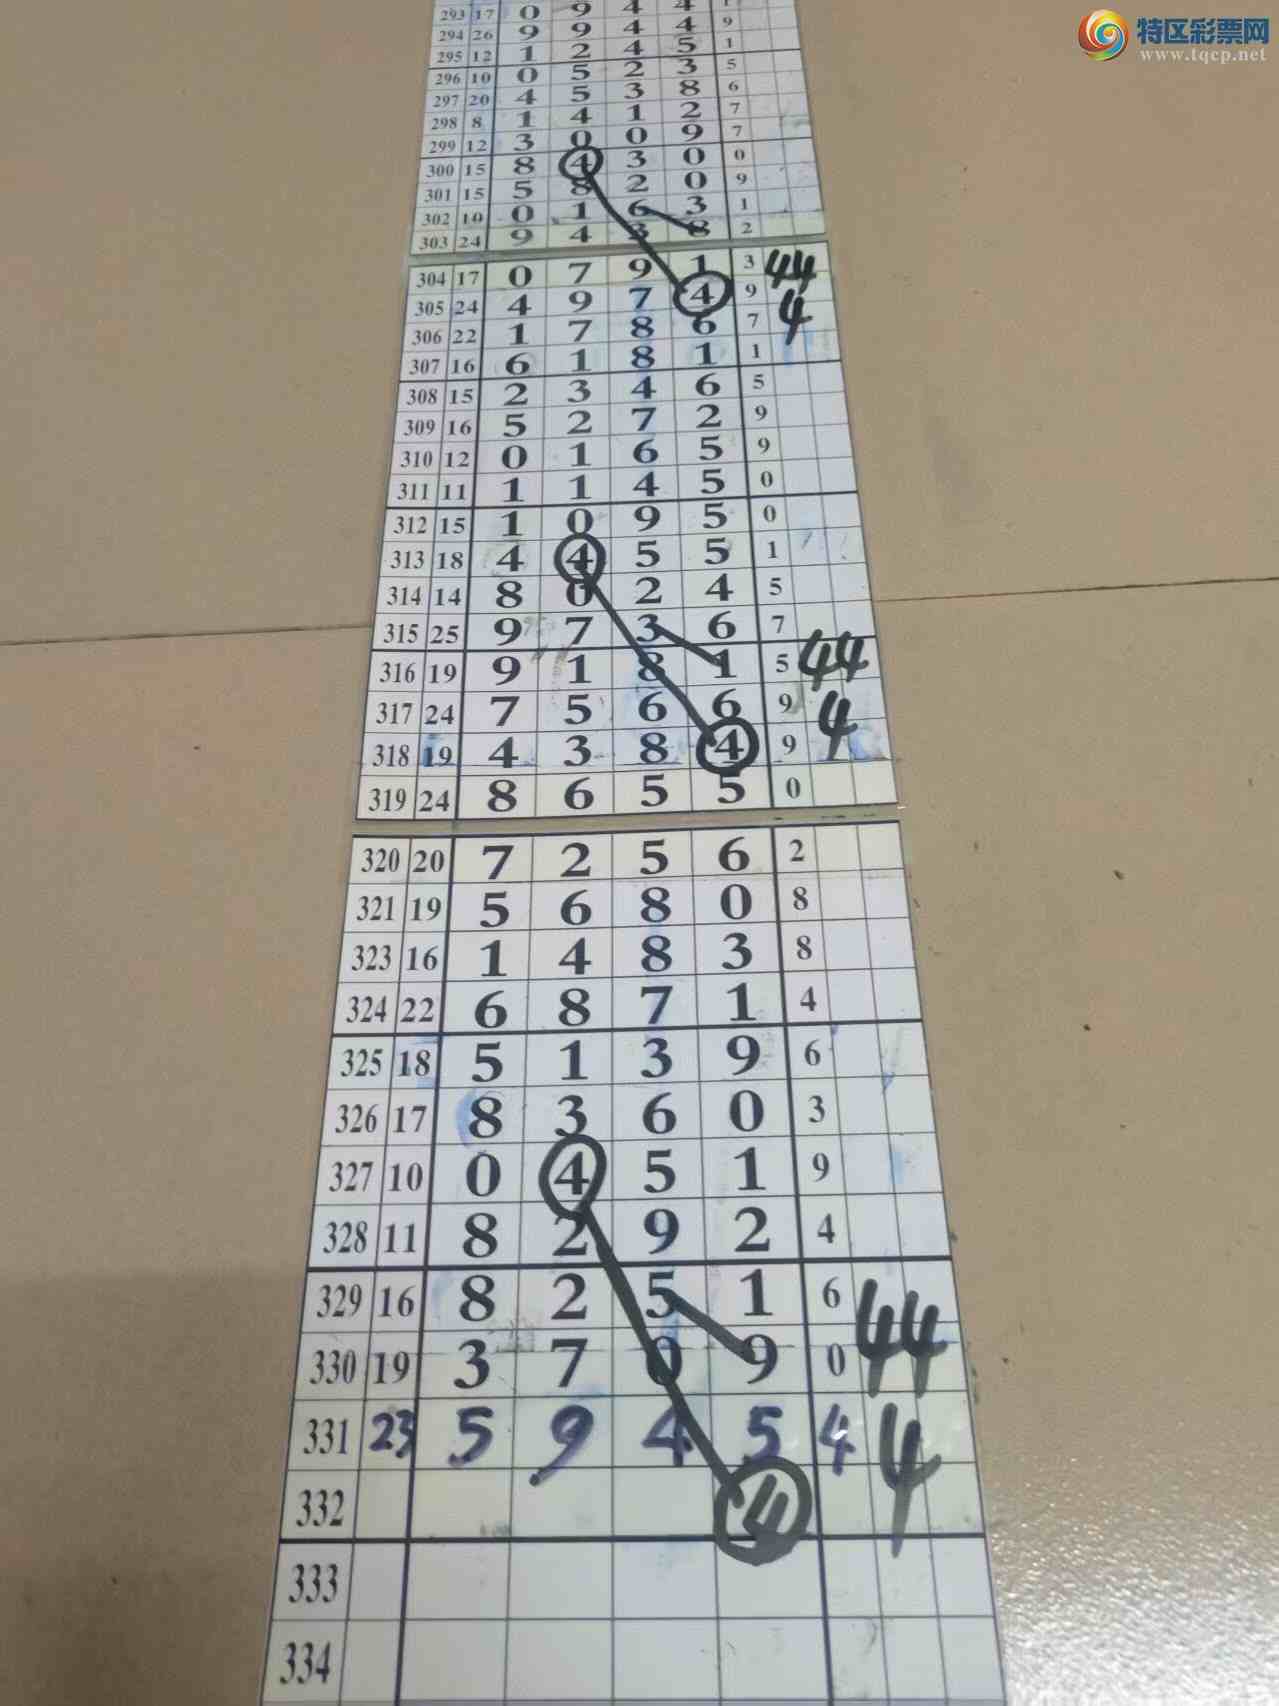 特区彩票网
www.tqcp.net
293 17 0 9 4 4
294 26 9 9 4 4 9
295 12 1 2 4 5 1
296 10 0 5 2 3 5
297 20 4 5 3 8 6
298 8 1 4 1 2 7
299 12 3 0 0 9 7
300 15 8 4 3 0 0
301 15 5 8 2 0 9
302 10 0 1 6 3 1
303 24 9 4 3 8 2
304 17 0 7 9 1 3 44
305 24 4 9 7 4 9 4
306 22 1 7 8 6 7
307 16 6 1 8 1 1
308 15 2 3 4 6 5
309 16 5 2 7 2 9
310 12 0 1 6 5 9
311 11 1 1 4 5 0
312 15 1 0 9 5 0
313 18 4 4 5 5 1
314 14 8 0 2 4 5
315 25 9 7 3 6 7
316 19 9 1 8 1 5 44
317 24 7 5 6 6 9 4
318 19 4 3 8 4 9
319 24 8 6 5 5 0
320 20 7 2 5 6 2
321 19 5 6 8 0 8
323 16 1 4 8 3 8
324 22 6 8 7 1 4
325 18 5 1 3 9 6
326 17 8 3 6 0 3
327 10 0 4 5 1 9
328 11 8 2 9 2 4
329 16 8 2 5 1 6 44
330 19 3 7 0 9 0
331 23 5 9 4 5 4 4
332 4
333
334